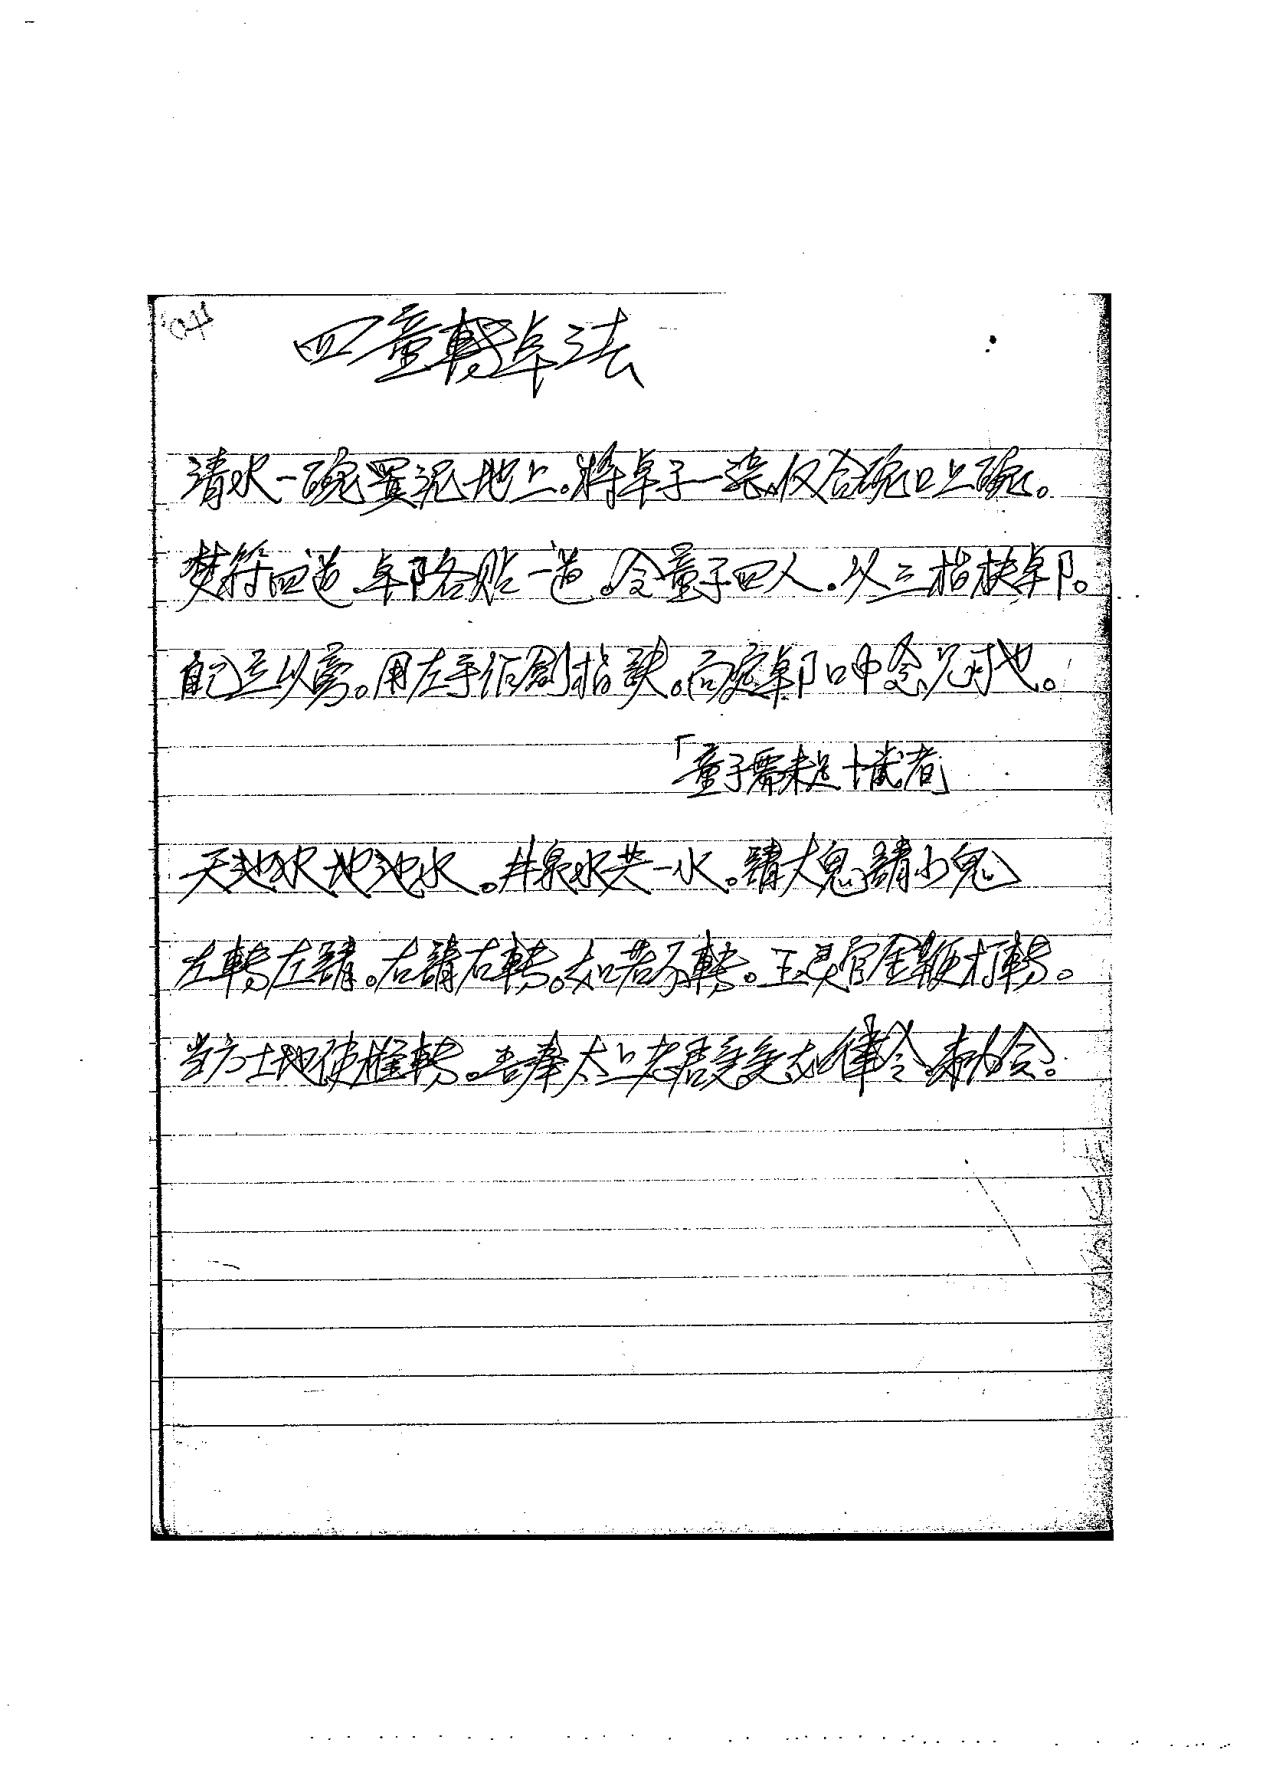 四童轉卓法
清水一碗置泥地上。將卓子一張仅合碗口上碗。
焚符四道 卓脚各貼一道。令童子四人。以三指扶卓脚。
自己立以旁。用左手作劍指訣。向庭卓脚口中念咒可也。
「童子需未足十歲者」
天池水地池水。井泉水共一水。請大鬼請小鬼
左轉左請。右請右轉。如若不轉。王灵官金鞭打轉。
当方土地使推轉。吾奉太上老君急急如律令。